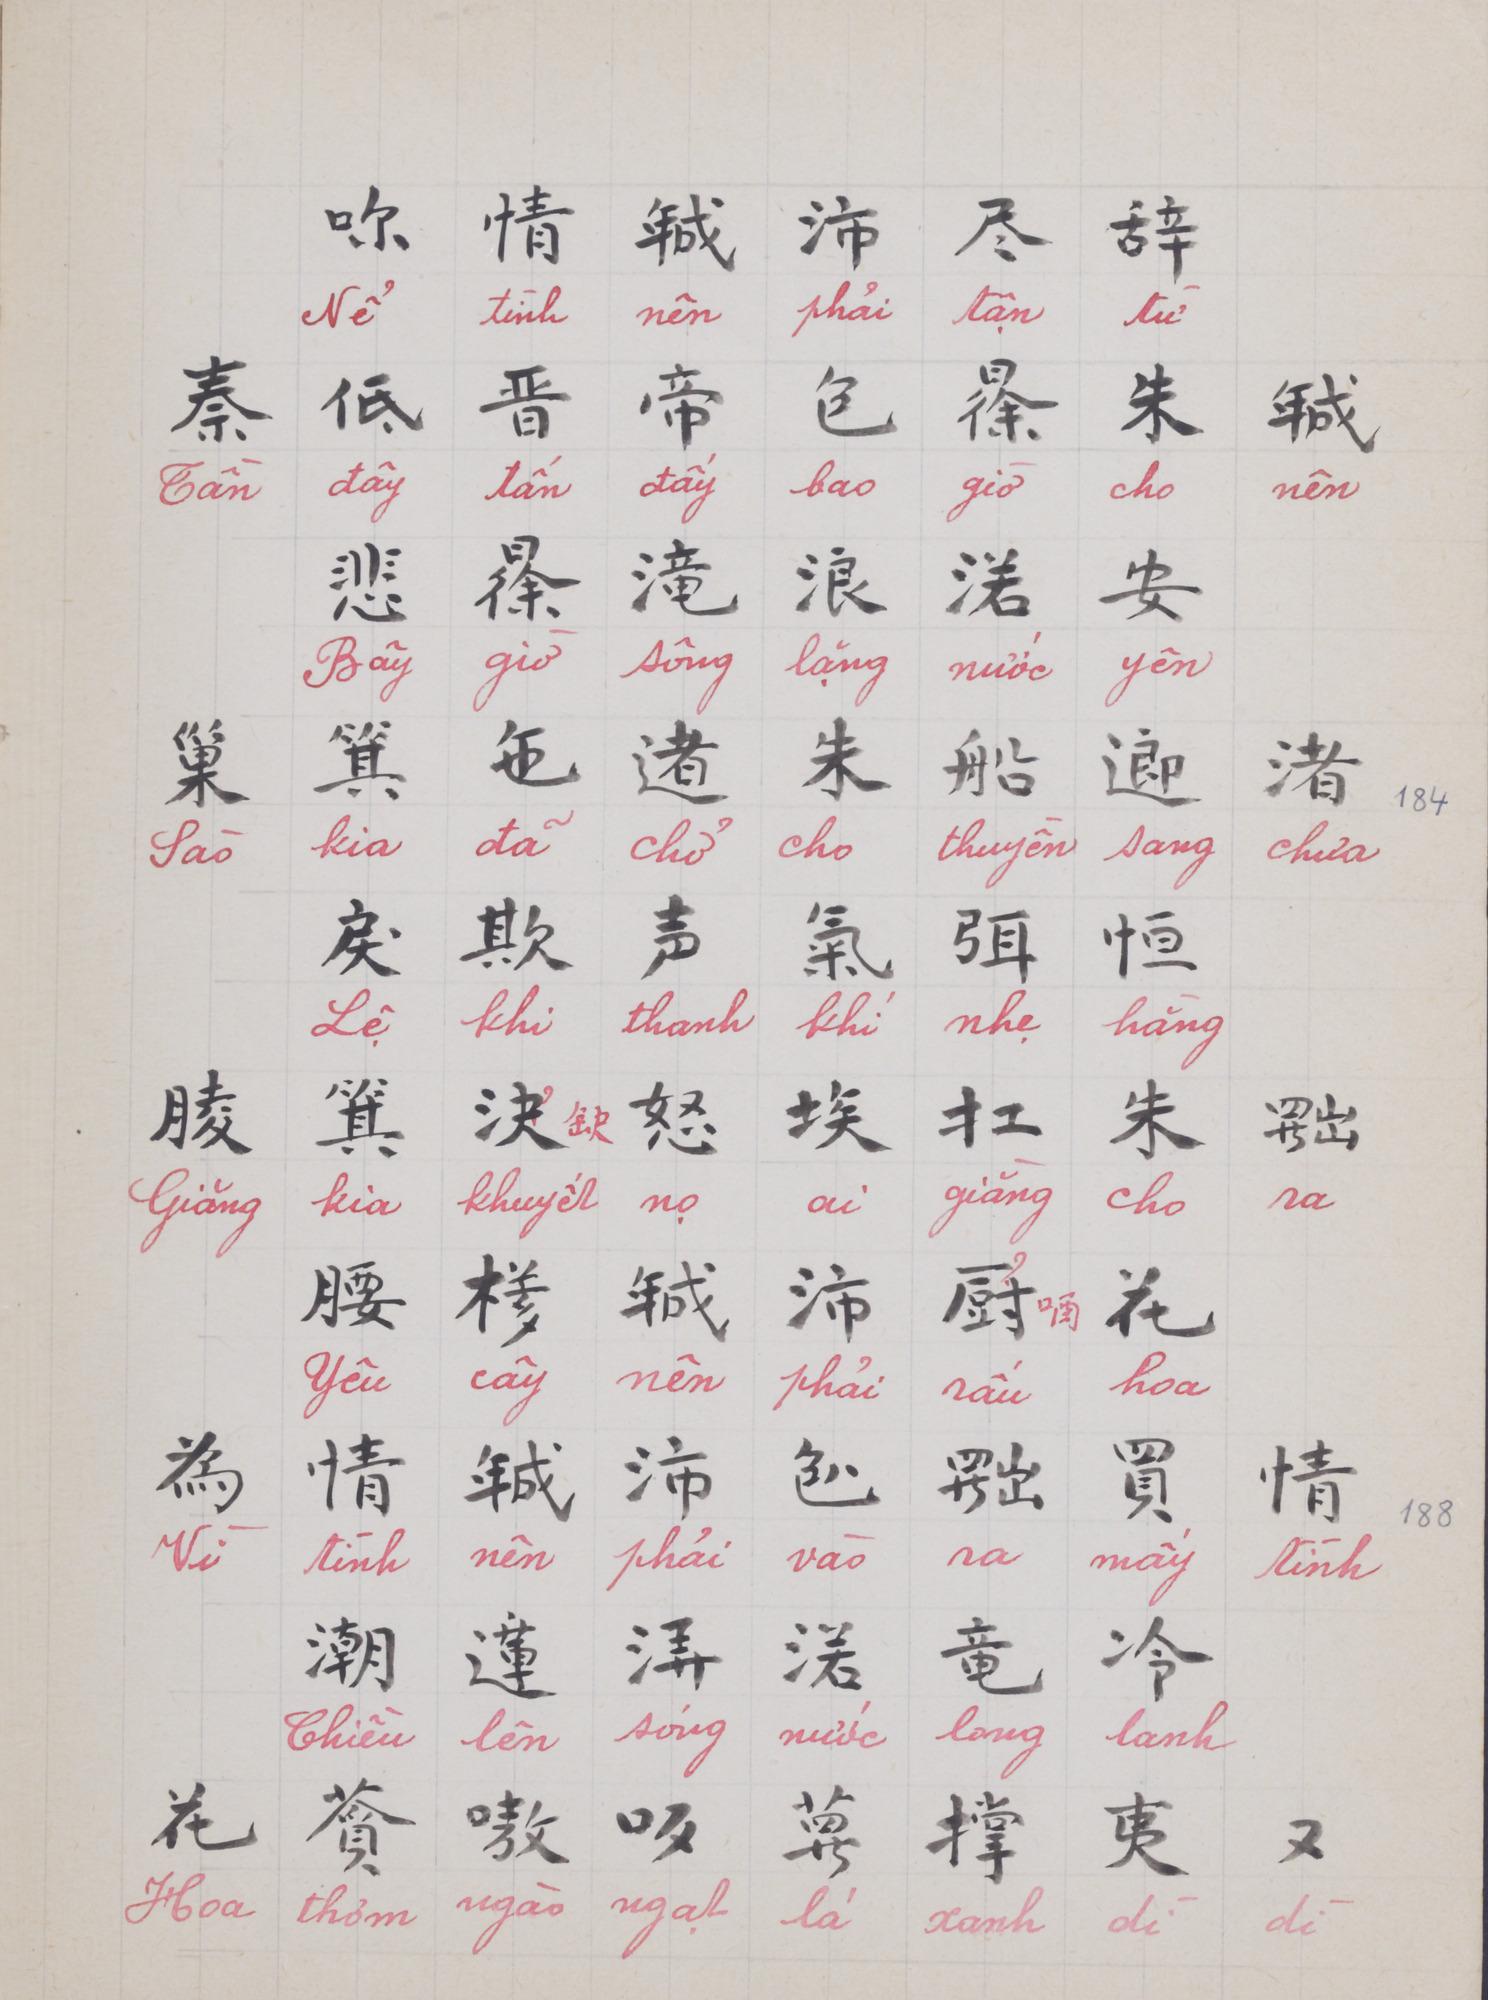 㕸情𢧚沛尽辞
Nể tình nên phải tận từ
秦低晋帝包𣇞朱𢧚
Tần đây tấn đấy bao giờ cho nên
悲𣇞滝浪渃安
Bây giờ sông lặng nước yên
巢箕㐌遉朱船𨖅渚 184
Sào kia đã chở cho thuyền sang chưa
戾欺声氣弭恒
Lệ khi thanh khí nhẹ hằng
䏠箕決缺怒埃扛朱𦋦
Giăng kia khuyết nọ ai giằng cho ra
腰𣘃𢧚沛厨㖡花
Yêu cây nên phải rấu hoa
為情𢧚沛𠓨𦋦買情 188
Vì tình nên phải vào ra mấy tình
潮蓮㳥渃竜冷
Chiều lên sóng nước long lanh
花𦹳嗷㕰𦲿撑夷又
Hoa thơm ngào ngạt lá xanh dì dì